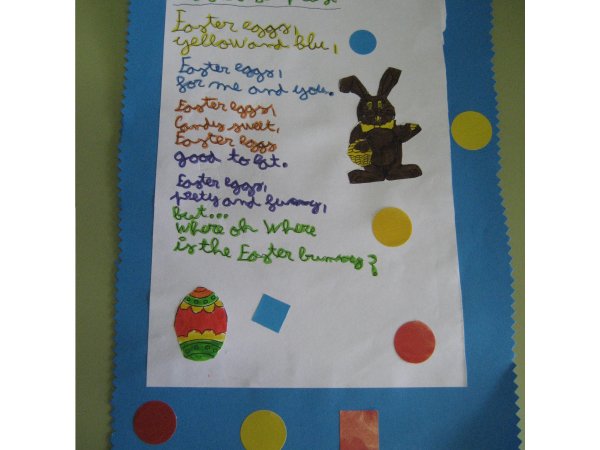 Easter eggs,
yellow and blu,
Easter eggs,
for me and you.
Easter eggs,
Candy sweet,
Easter eggs
good to eat.
Easter eggs,
pretty and funny,
but...
Where oh Where
is the Easter bunny?